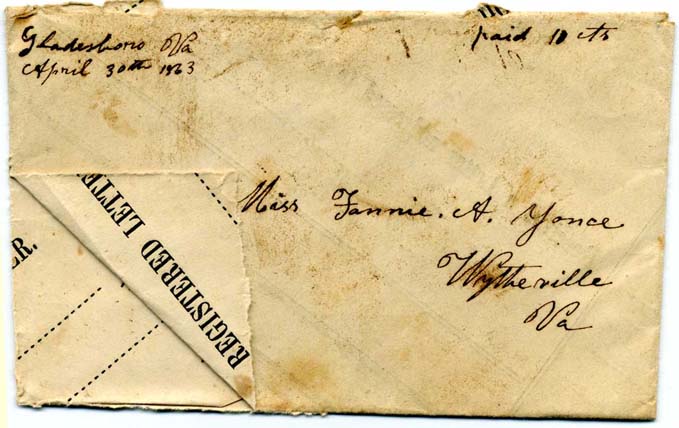 Gladesboro Va
April 30th 1863
paid 10 cts
10
Miss Fannie. A. Yonce
Wytheville
Va
REGISTERED LETTE
ER.